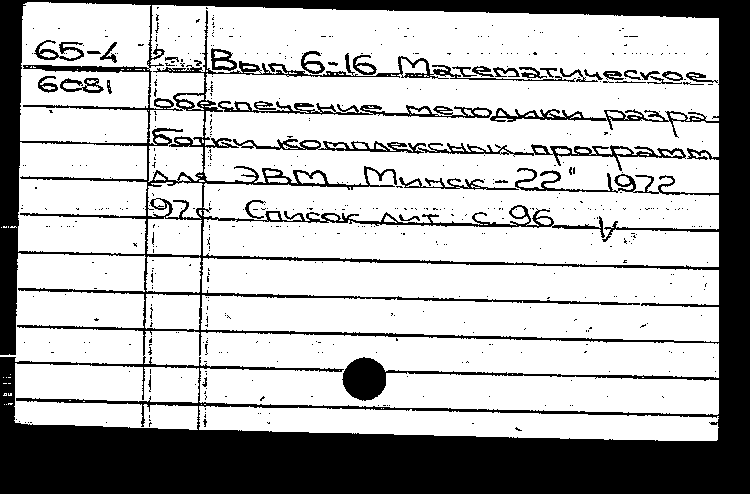 65-4 2 Вып. 6-16 Математическое
6081
обеспечение методики разра-
ботки комплексных программ
для ЭВМ „Минск-22" 1972
97с Список лит. с. 96 V